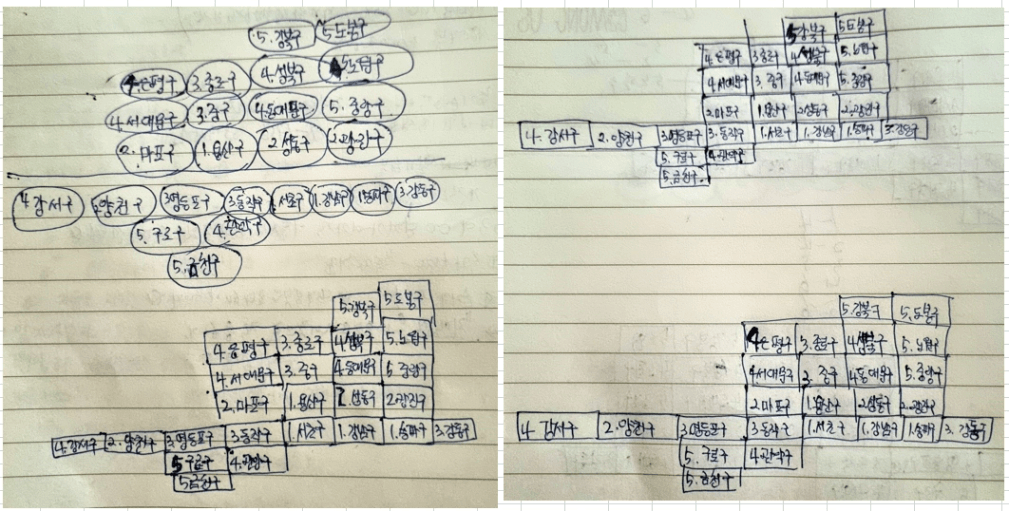 5. 강북구 5 도봉구
4. 은평구 3. 종로구 4. 성북구 노원구
4. 서대문구 3. 중구 4. 동대문구 5. 중랑구
2. 마포구 1. 용산구 2 성동구 2. 광진구
4 강서구 양천구 3 영등포구 3 동작구 서초구 1. 강남구 1. 송파구 3. 강동구
5. 구로구 4. 관악구
5. 금천구
5. 강북구 5 도봉구
4. 은평구 3. 종로구 4. 성북구 5. 노원구
4. 서대문구 3. 중구 4. 동대문구 5 중랑구
2. 마포구 1. 용산구 성동구 2. 광진구
4. 강서구 2. 양천구 3 영등포구 3 동작구 1. 서초구 1. 강남구 1. 송파구 3. 강동구
5 구로구 4. 관악구
5 금천구
5 강북구 5 도봉구
4. 은평구 3 종로구 4 성북구 5. 노원구
4. 서대문구 3. 중구 4. 동대문구 5. 중랑구
2. 마포구 1. 용산구 2 성동구 2. 광진구
4. 강서구 2. 양천구 3 영등포구 3. 동작구 1. 서초구 1. 강남구 1. 송파구 3. 강동구
5. 구로구 4. 관악구
5. 금천구
5. 강북구 5. 도봉구
4 은평구 3. 종로구 4 성북구 5. 노원구
4 서대문구 3. 중구 4 동대문구 5. 중랑구
2. 마포구 1. 용산구 2 성동구 2. 광진구
4. 강서구 2. 양천구 3 영등포구 3 동작구 1. 서초구 1. 강남구 1. 송파구 3. 강동구
5. 구로구 4. 관악구
5. 금천구